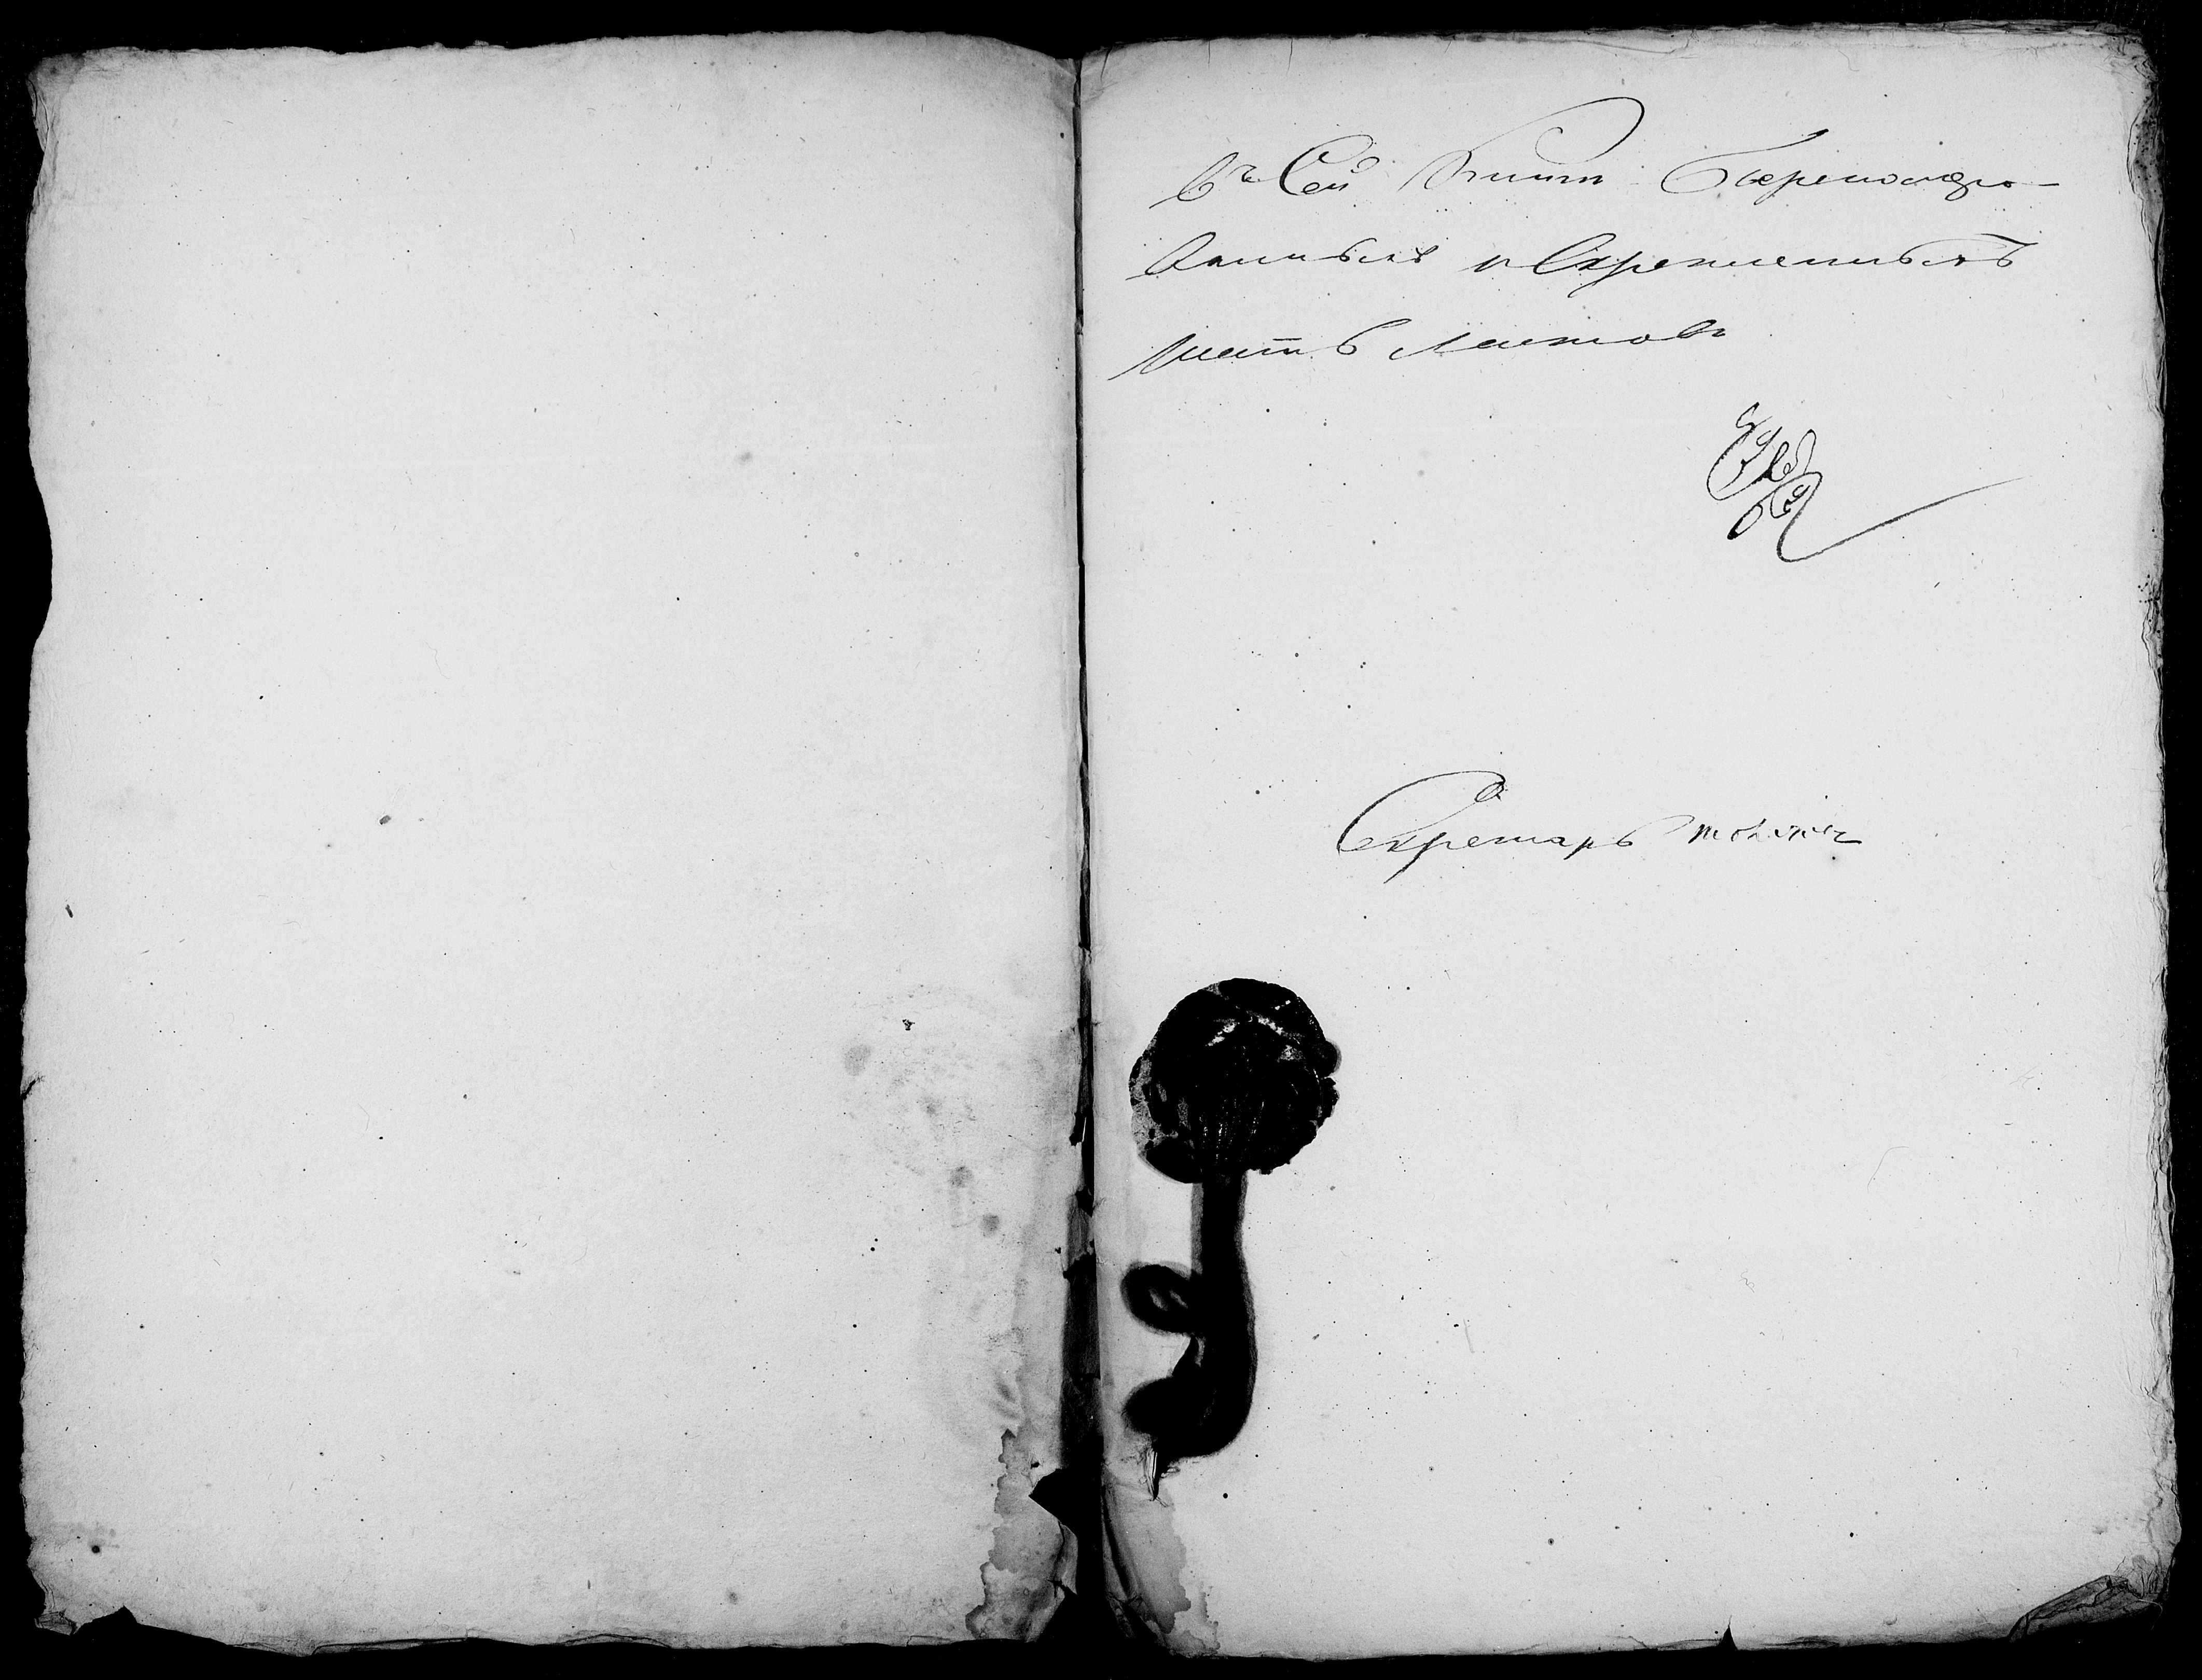 въ Сей Книгѣ Перенумеро-
ванныхъ и Скрепленныхъ
шесть Листовъ
Секретарь